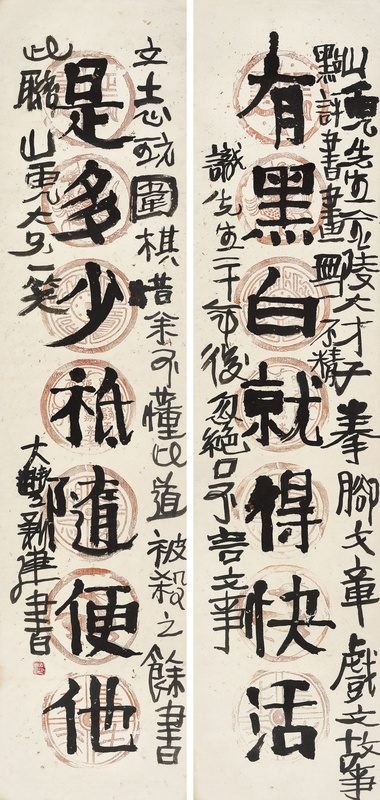 有黑白就得快活
山霓先生金陵大才子拳腳文章戲文故事
書畫無一不精
識先生二十年後忽絕口不言文事
是多少祗隨便他
文志玩圍棋惜余不懂此道被殺之餘書
此聯山霓大兄一笑
大聾新建書